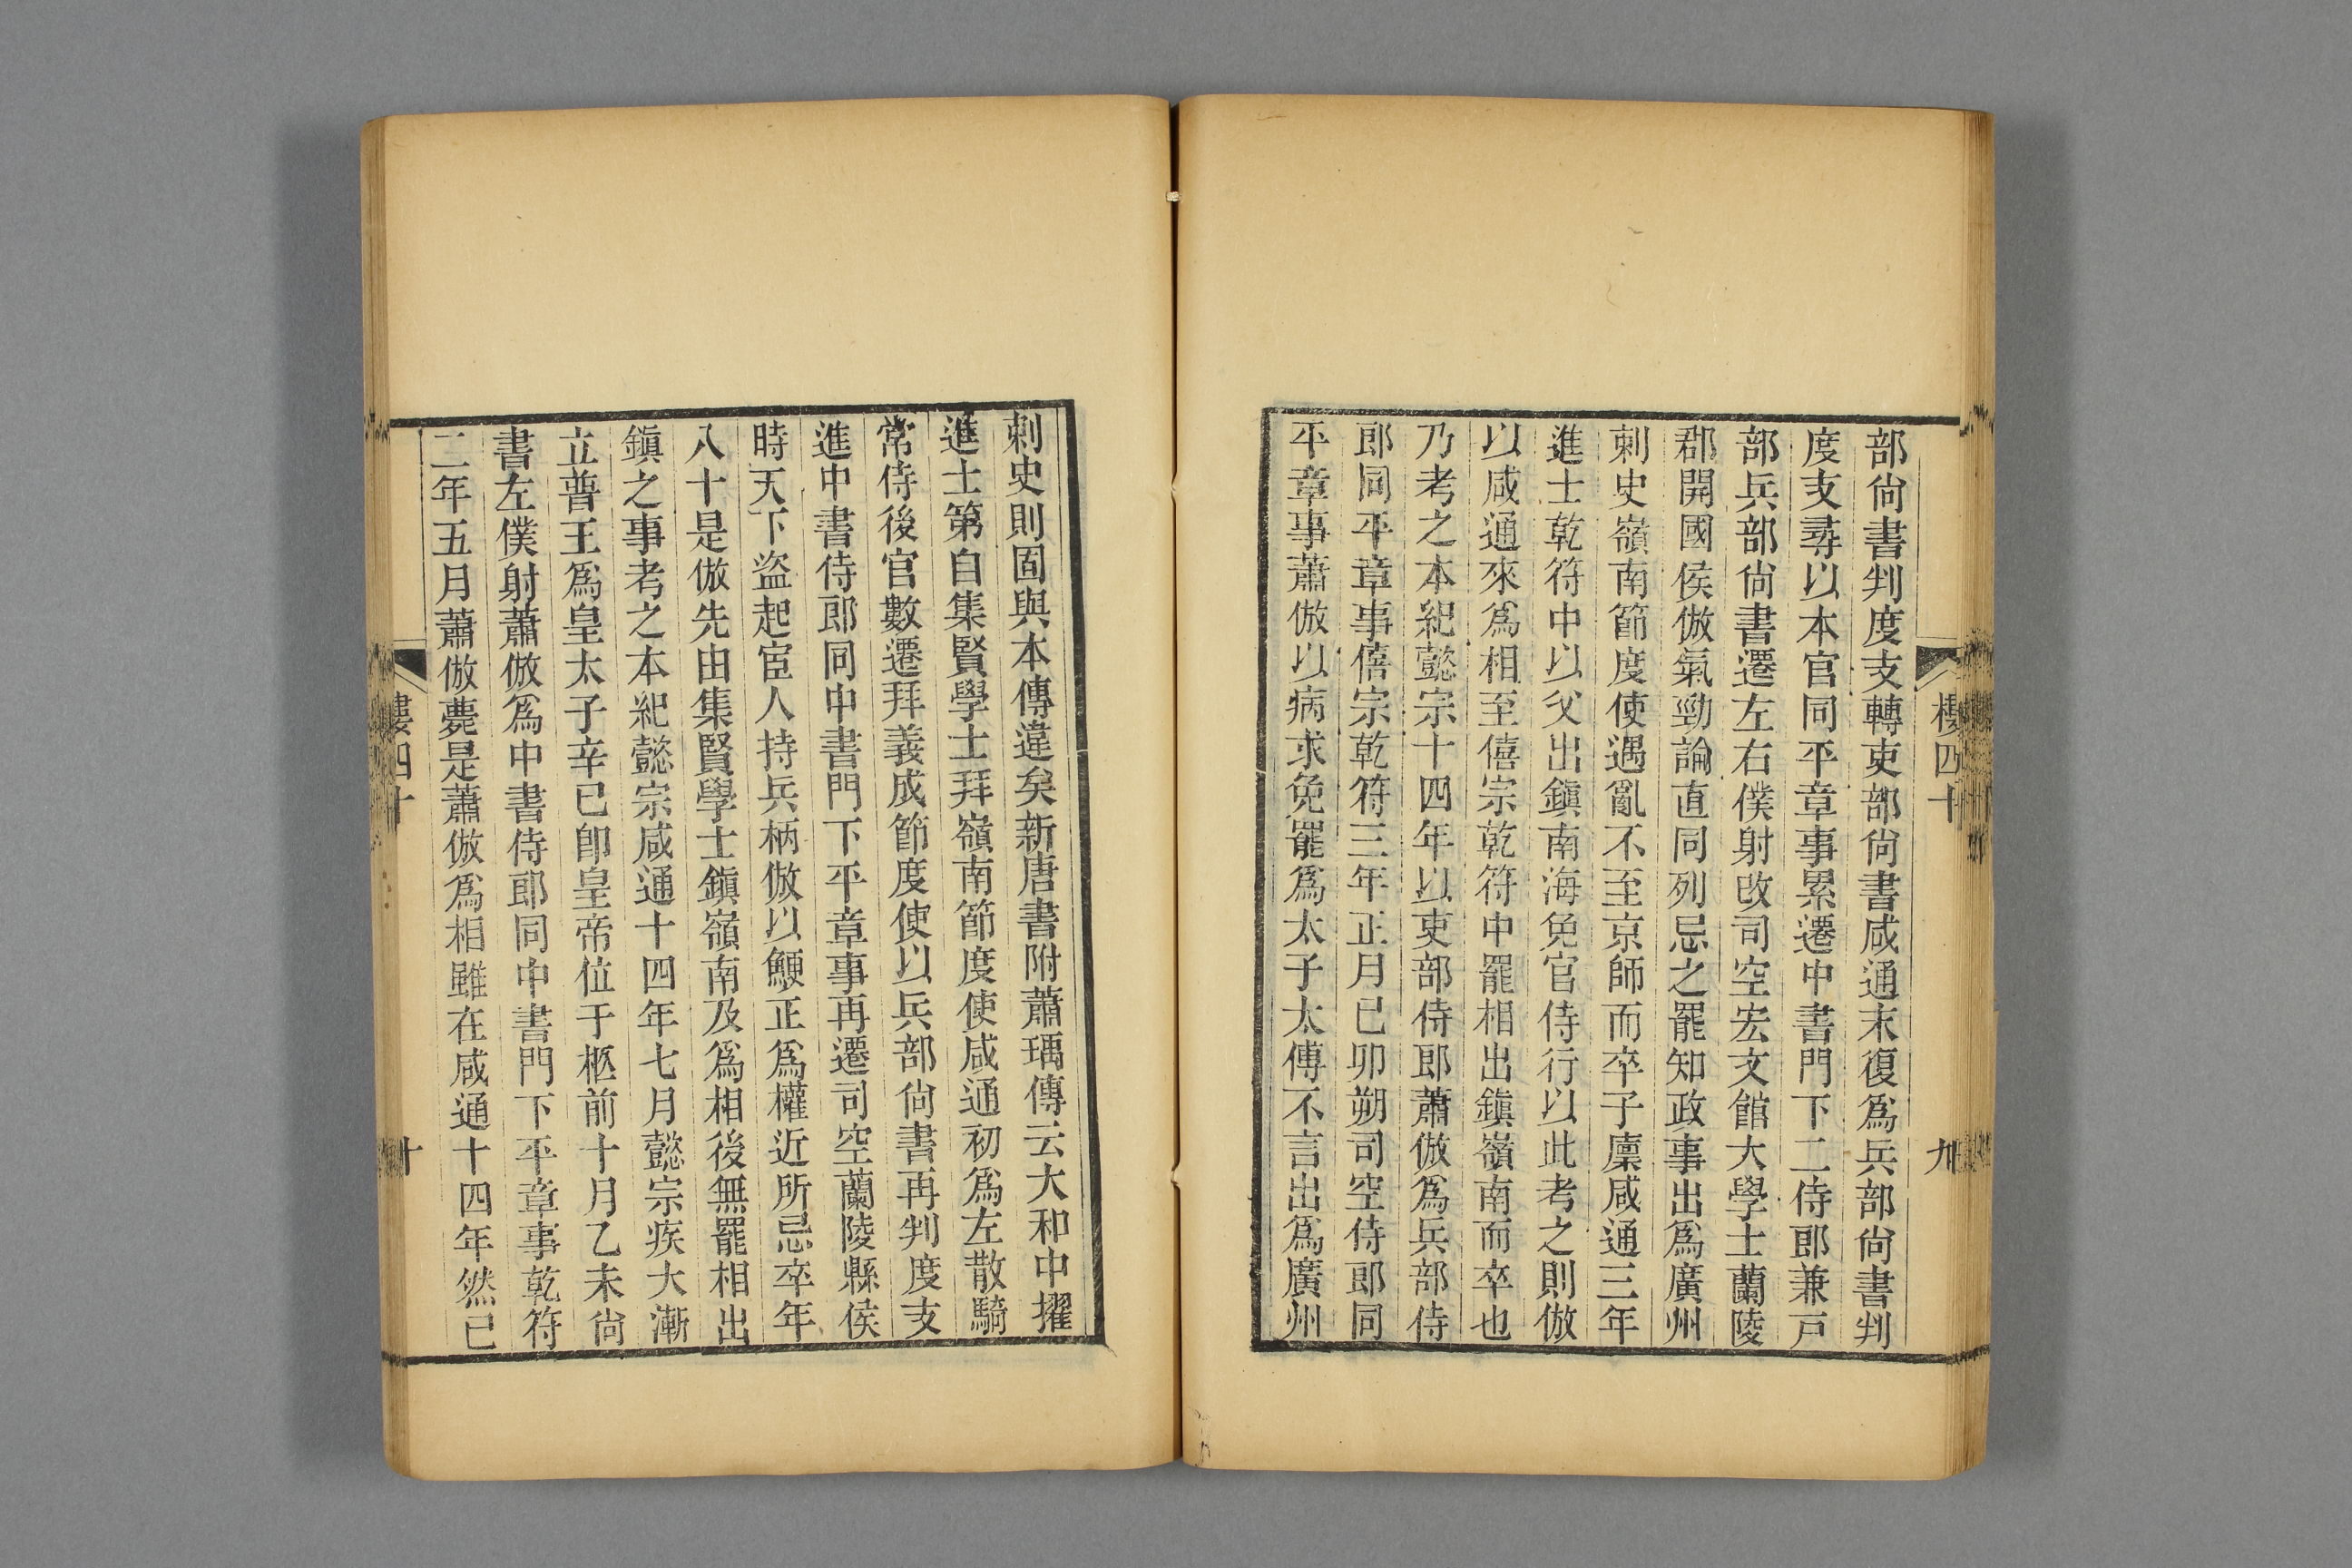 部尙書判度支轉吏部尙書咸通末復爲兵部尙書判
度支尋以本官同平章事累遷中書門下二侍郎兼戸
部兵部尙書遷左右僕射改司空宏文館大學士蘭陵
郡開國侯倣氣勁論直同列忌之罷知政事出爲廣州
刺史嶺南節度使遇亂不至京師而卒子廩咸通三年
進士乾符中以父出鎭南海免官侍行以此考之則倣
以咸通來爲相至僖宗乾符中罷相出鎭嶺南而卒也
乃考之本紀懿宗十四年以吏部侍郎蕭倣爲兵部侍
郎同平章事僖宗乾符三年正月已卯朔司空侍郎同
平章事蕭倣以病求免罷爲太子太傅不言出爲廣州
樓四十
九
刺史則固與本傳違矣新唐書附蕭瑀傳云大和中擢
進士第自集賢學士拜嶺南節度使咸通初爲左散騎
常侍後官數遷拜義成節度使以兵部尙書再判度支
進中書侍郎同中書門下平章事再遷司空蘭陵縣侯
時天下盜起宦人持兵柄倣以鯁正爲權近所忌卒年
八十是倣先由集賢學士鎭嶺南及爲相後無罷相出
鎭之事考之本紀懿宗咸通十四年七月懿宗疾大漸
立普王爲皇太子辛巳卽皇帝位于柩前十月乙未尙
書左僕射蕭倣爲中書侍郎同中書門下平章事乾符
二年五月蕭倣薨是蕭倣爲相雖在咸通十四年然已
樓四十
十